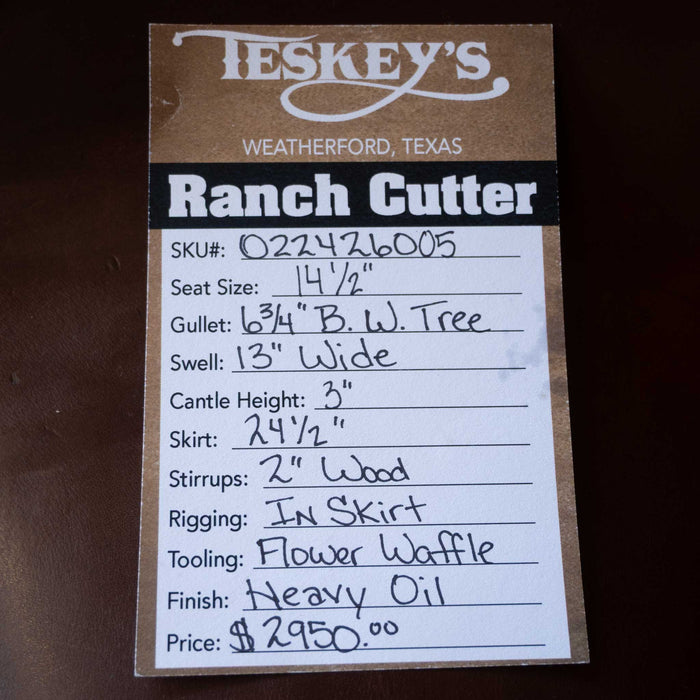 TESKEY'S
WEATHERFORD, TEXAS
Ranch Cutter
SKU#: 022426005
Seat Size: 14 1/2"
Gullet: 6 3/4" B. W. Tree
Swell: 13" Wide
Cantle Height: 3"
Skirt: 24 1/2"
Stirrups: 2" Wood
Rigging: IN Skirt
Tooling: Flower Waffle
Finish: Heavy Oil
Price: $2950.00